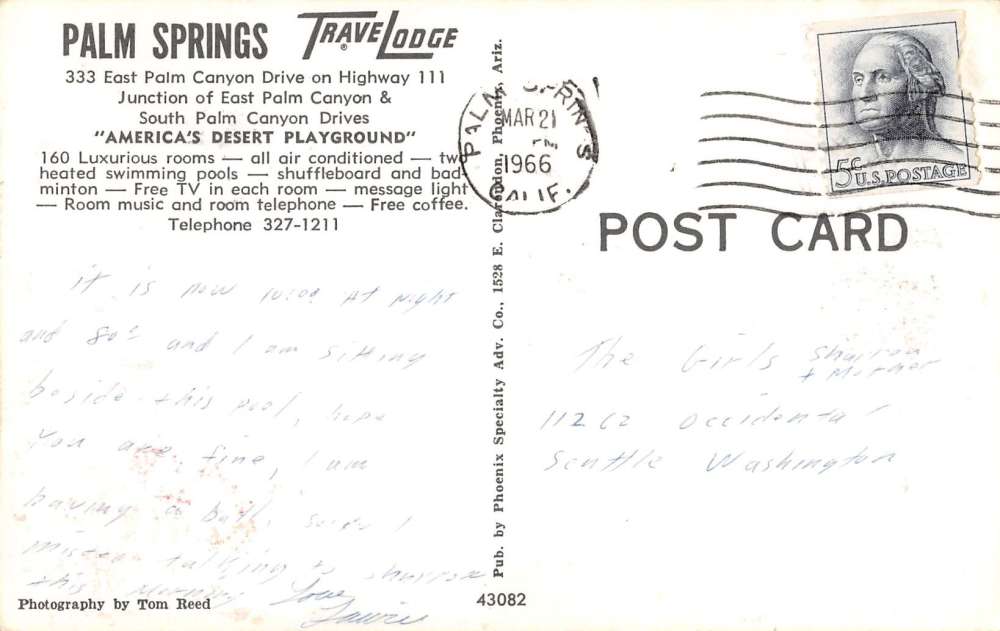 PALM SPRINGS TRAVELODGE®
333 East Palm Canyon Drive on Highway 111
Junction of East Palm Canyon &
South Palm Canyon Drives
"AMERICA'S DESERT PLAYGROUND"
160 Luxurious rooms — all air conditioned — two
heated swimming pools — shuffleboard and bad-
minton — Free TV in each room — message light
— Room music and room telephone — Free coffee.
Telephone 327-1211
it is now 10:00 At Night
and 80° and I am sitting
beside this pool, hope
You are fine, I am
having a ball, I
talking to
this Morning Love
Photography by Tom Reed
Pub. by Phoenix Specialty Adv. Co., 1528 E. Clarendon, Phoenix, Ariz.
43082
PALM SPRINGS
MAR 21
1966
CALIF.
5c U.S. POSTAGE
POST CARD
The Girls
+ Mother
Occidental
Seattle Washington